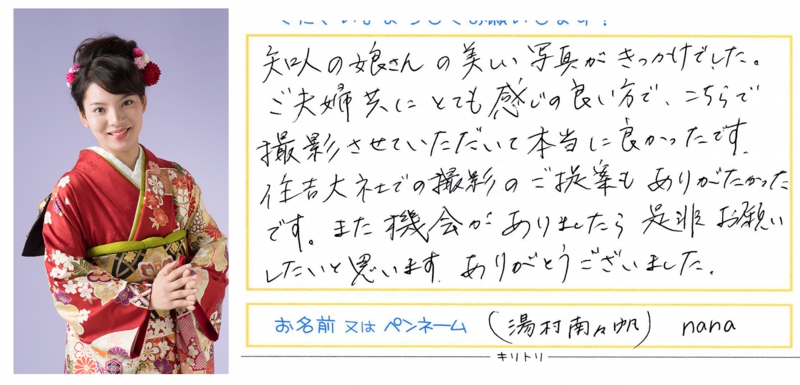 ください。よろしくお願いします!
知人の娘さんの美しい写真がきっかけでした。
ご夫婦共にとても感じの良い方で、こちらで
撮影させていただいて本当に良かったです。
住吉大社での撮影のご提案もありがたかった
です。また機会がありましたら是非お願い
したいと思います。ありがとうございました。
お名前又はペンネーム (湯村南々帆) nana
キリトリ